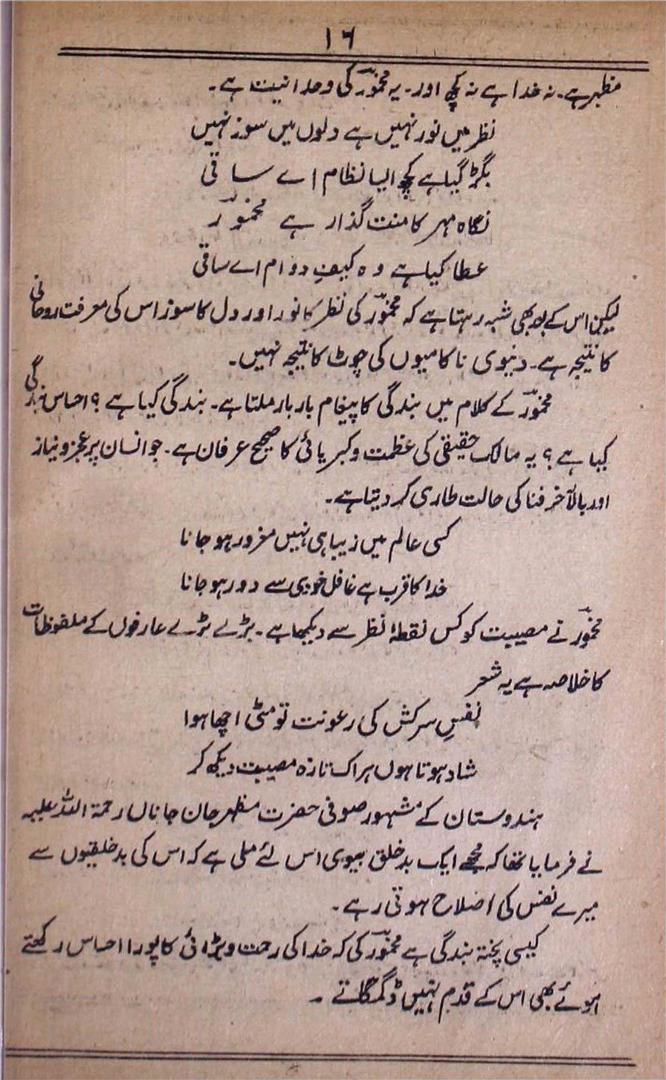 ۱۶
مظہر ہے۔ نہ خدا ہے نہ کچھ اور۔ یہ مخمورؔ کی وحدانیت ہے۔
نظر میں نور نہیں ہے دلوں میں سوز نہیں
بگڑ گیا ہے کچھ ایسا نظام اے ساقی
نگاہ مہر کا منت گذار ہے مخمورؔ
عطا کیا ہے وہ کیفِ دوام اے ساقی
لیکن اس کے بعد بھی شبہ رہتا ہے کہ مخمورؔ کی نظر کا نور اور دل کا سوز اس کی معرفت روحانی
کا نتیجہ ہے۔ دنیوی ناکامیوں کی چوٹ کا نتیجہ نہیں۔
مخمورؔ کے کلام میں بندگی کا پیغام بار بار ملتا ہے۔ بندگی کیا ہے ؟ احساس بندگی
کیا ہے ؟ یہ مالک حقیقی کی عظمت و کبریائی کا صحیح عرفان ہے۔ جو انسان پر عجز و نیاز
اور بالآخر فنا کی حالت طاری کر دیتا ہے۔
کسی عالم میں زیبا ہی نہیں مغرور ہو جانا
خدا کا قرب ہے غافل خودی سے دور ہو جانا
مخمورؔ نے مصیبت کو کس نقطۂ نظر سے دیکھا ہے۔ بڑے بڑے عارفوں کے ملفوظات
کا خلاصہ ہے یہ شعر
نفسِ سرکش کی رعونت تو مٹی اچھا ہوا
شاد ہوتا ہوں ہر اک تازہ مصیبت دیکھ کر
ہندوستان کے مشہور صوفی حضرت مظہر جان جاناں رحمۃ اللہ علیہ
نے فرمایا تھا کہ مجھے ایک بدخلق بیوی اس لئے ملی ہے کہ اس کی بدخلقیوں سے
میرے نفس کی اصلاح ہوتی رہے۔
کیسی پختہ بندگی ہے مخمورؔ کی کہ خدا کی رحمت و بڑائی کا پورا احساس رکھتے
ہوئے بھی اس کے قدم نہیں ڈگمگاتے ۔